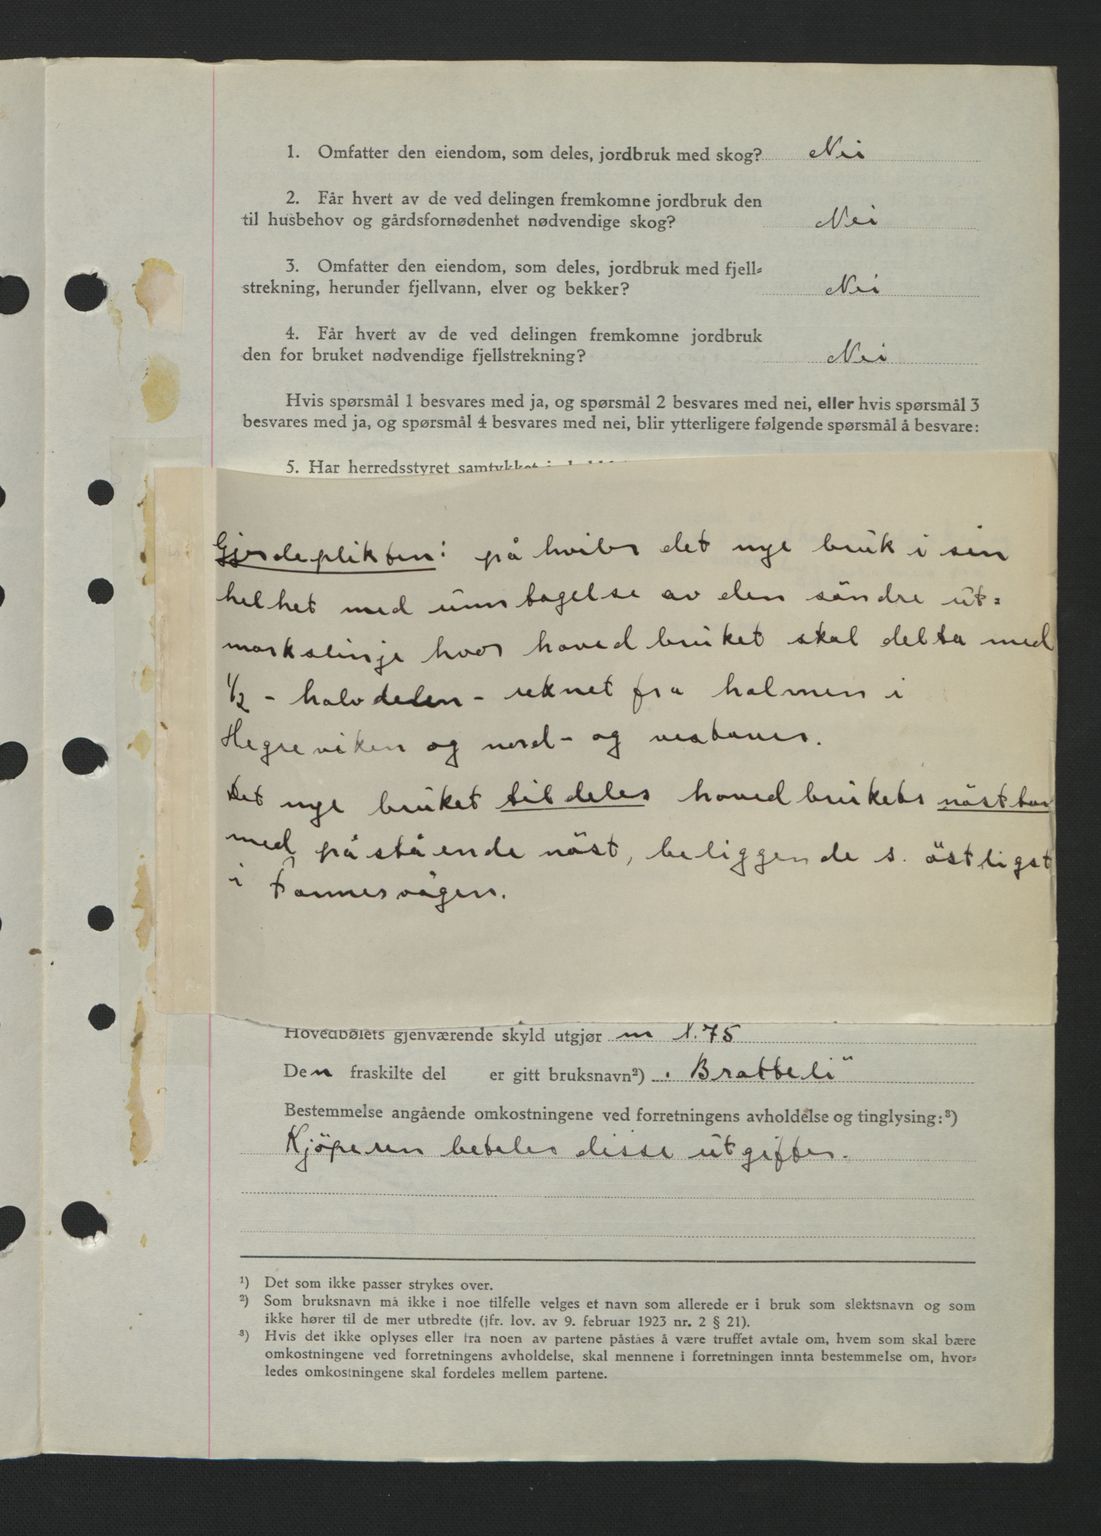 1. Omfatter den eiendom, som deles, jordbruk med skog? Nei
2. Får hvert av de ved delingen fremkomne jordbruk den
til husbehov og gårdsfornødenhet nødvendige skog? Nei
3. Omfatter den eiendom, som deles, jordbruk med fjell=
strekning, herunder fjellvann, elver og bekker? Nei
4. Får hvert av de ved delingen fremkomne jordbruk
den for bruket nødvendige fjellstrekning? Nei
Hvis spørsmål 1 besvares med ja, og spørsmål 2 besvares med nei, eller hvis spørsmål 3
besvares med ja, og spørsmål 4 besvares med nei, blir ytterligere følgende spørsmål å besvare:
5. Har herredsstyret samtykket i
Gjerdeplikten: på hviler det nye bruk i sin
helhet med unntagelse av den söndre ut=
markslinje hvor hovedbruket skal delta med
1/2 - halvdelen - reknet fra holmen i
Hegreviken og nord- og vestover.
Det nye bruket tildeles hovedbrukets
med påstående nöst, beliggende s. östligst
i Fannesvågen.
Hovedbølets gjenværende skyld utgjør m 1.75
Den fraskilte del er gitt bruksnavn²) „Bratteli"
Bestemmelse angående omkostningene ved forretningens avholdelse og tinglysing:³)
Kjöperen betaler disse utgifter.
¹) Det som ikke passer strykes over.
²) Som bruksnavn må ikke i noe tilfelle velges et navn som allerede er i bruk som slektsnavn og som
ikke hører til de mer utbredte (jfr. lov. av 9. februar 1923 nr. 2 § 21).
³) Hvis det ikke oplyses eller fra noen av partene påståes å være truffet avtale om, hvem som skal bære
omkostningene ved forretningens avholdelse, skal mennene i forretningen innta bestemmelse om, hvor=
ledes omkostningene skal fordeles mellem partene.